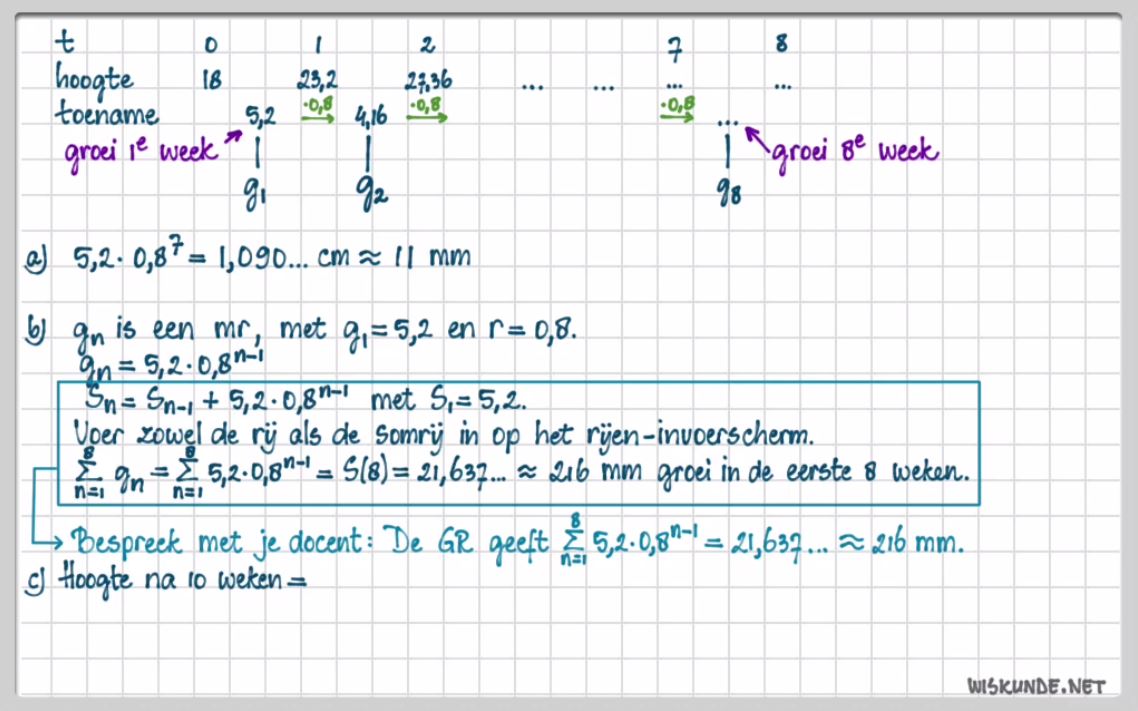 t 0 1 2 7 8
hoogte 18 23,2 27,36 ... ... ... ...
toename 5,2 ·0,8 4,16 ·0,8 ·0,8 ...
groei 1e week groei 8e week
g1 g2 g8
a) 5,2 · 0,8^7 = 1,090... cm ≈ 11 mm
b) gn is een mr, met g1 = 5,2 en r = 0,8.
gn = 5,2 · 0,8^n-1
Sn = Sn-1 + 5,2 · 0,8^n-1 met S1 = 5,2.
Voer zowel de rij als de somrij in op het rijen-invoerscherm.
8∑n=1 gn = 8∑n=1 5,2 · 0,8^n-1 = S(8) = 21,637... ≈ 216 mm groei in de eerste 8 weken.
Bespreek met je docent: De GR geeft 8∑n=1 5,2 · 0,8^n-1 = 21,637... ≈ 216 mm.
c) Hoogte na 10 weken =
WISKUNDE.NET